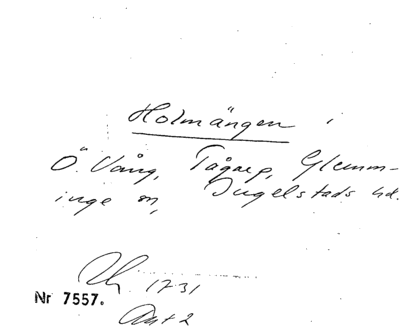 Holmängen i
Ö. Vång, Tågarp, Glemm-
inge sn, Ingelstads hd.
Lh. 1731
Nr 7557.
Akt 2